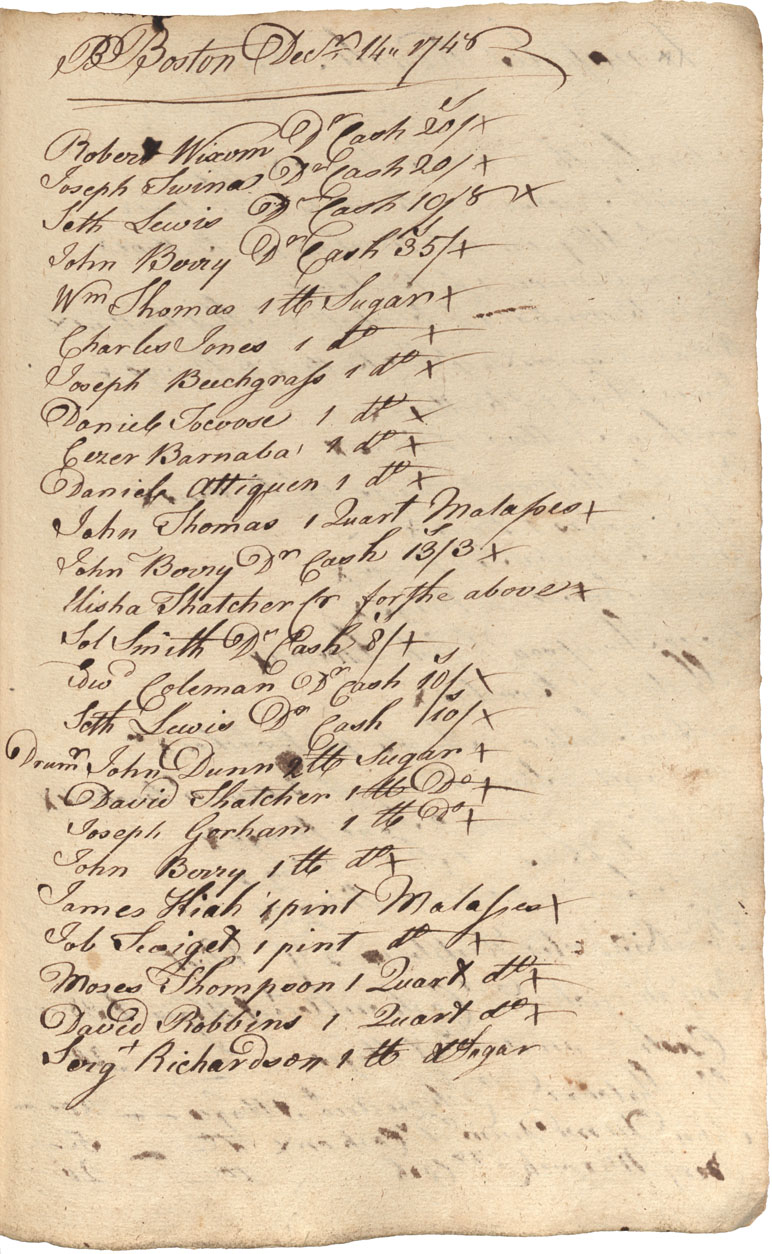 B Boston Decr 14 1748
Robert Wixom Dr Cash 20/ x
Joseph Twinas Dr Cash 20/ x
Seth Lewis Dr Cash 10/8 x
John Berry Dr Cash 35/ x
Wm Thomas 1 lb Sugar x
Charles Jones 1 do x
Joseph Beechgrass 1 do x
Daniel Tocvose 1 do x
Cezer Barnaba 1 do x
Daniel Attiquen 1 do x
John Thomas 1 Quart Malasses x
John Berry Dr Cash 13/3 x
Elisha Thatcher Cr for the above x
Sol Smith Dr Cash 8/ x
Edwd Coleman Dr Cash 10/ x
Seth Lewis Dr Cash 10/ x
Drumr John Dunn 2 lb Sugar x
David Thatcher 1 lb Do x
Joseph Gorham 1 lb Do x
John Berry 1 lb do x
James Hiah 1 pint Malasses x
Job 1 pint do x
Moses Thompson 1 Quart do x
David Robbins 1 Quart do x
Sergt Richardson 1 lb Sugar